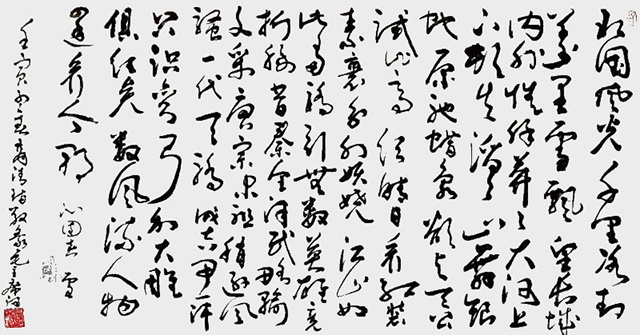 北国风光千里冰封
万里雪飘望长城
内外惟馀莽々大河上
下顿失滔々山舞银
蛇原驰蜡象欲与天公
试比高须晴日看红装
素裹分外妖娆江山如
此多娇引无数英雄竞
折腰昔秦皇汉武略输
文采唐宗宋祖稍逊风
骚一代天骄成吉思汗
只识弯弓射大雕
俱往矣数风流人物
还看今朝 沁园春 雪
壬寅